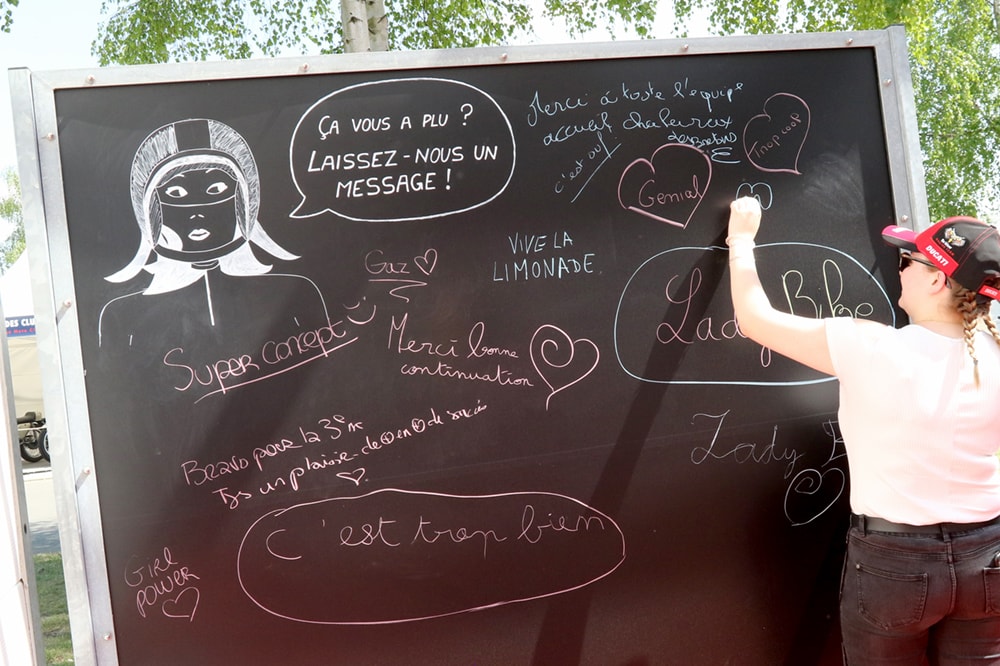 ÇA VOUS A PLU ?
LAISSEZ-NOUS UN
MESSAGE !
Merci à toute l'équipe
accueil chaleureux
c'est ouf
Génial
Trop coop
VIVE LA
LIMONADE.
Gaz
Super concept
Merci bonne
continuation
Lady Bike
Lady
Bravo pour la 3e
Tjs un plaisir de + en + de
C'est trop bien
GIRL
POWER
DUCATI
DES CLU